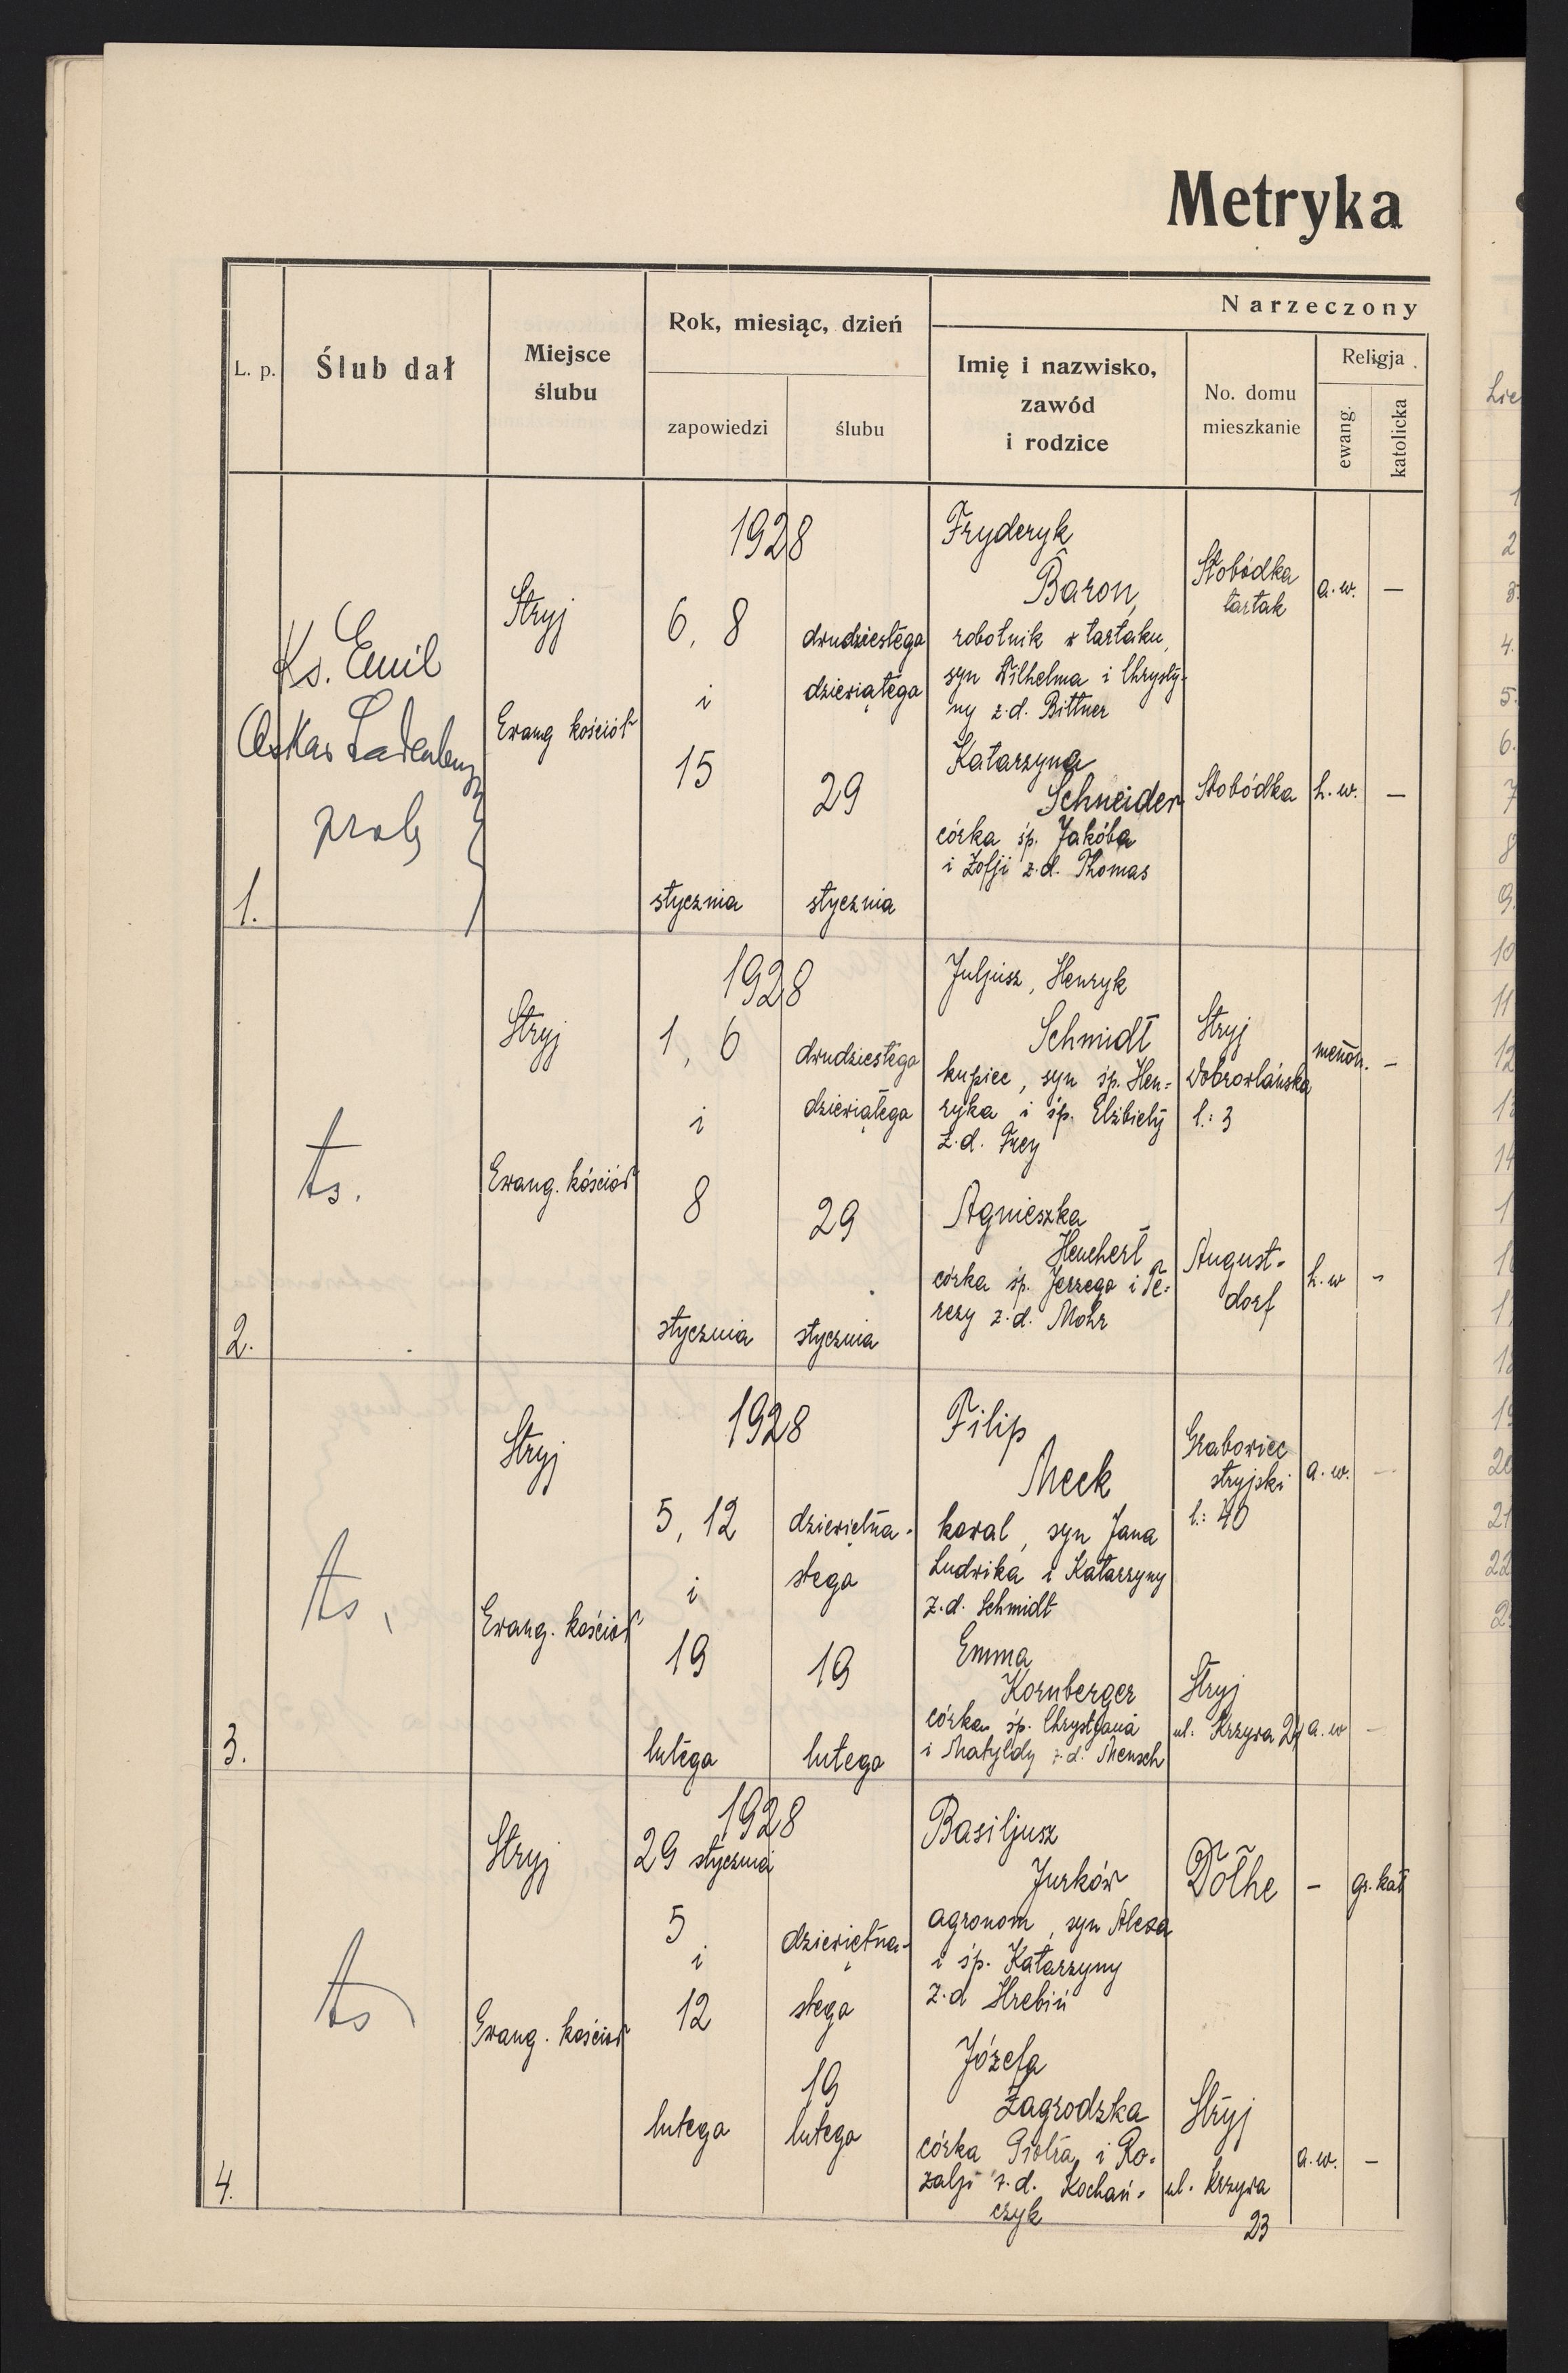 Metryka
L. p.
Ślub dał
Miejsce
ślubu
Rok, miesiąc, dzień
zapowiedzi
ślubu
Narzeczony
Imię i nazwisko,
zawód
i rodzice
No. domu
mieszkanie
Religja
ewang.
katolicka
1.
Ks. Emil
Oskar Ladenberger
prob
Stryj
Ewang kościół
1928
6, 8
i
15
stycznia
dwudziestego
dziewiątego
29
stycznia
Fryderyk
Baron,
robotnik w tartaku,
syn Wilhelma i Chrysty-
ny z.d. Bittner
Słobódka
tartak
a. w.
—
Katarzyna
Schneider
córka śp. Jakóba
i Zofji z.d. Thomas
Słobódka
h. w.
—
2.
ts.
Stryj
Ewang. kościół
1928
1, 6
i
8
stycznia
dwudziestego
dziewiątego
29
stycznia
Juljusz, Henryk
Schmidt
kupiec, syn śp. Hen-
ryka i śp. Elżbiety
z.d. Frey
Stryj
Dobrowlańska
l.: 3
menon.
-
Agnieszka
Heuchert
córka śp. Jerzego i Te-
rezy z.d. Mohr
August-
dorf
h. w
-
3.
ts.
Stryj
Ewang. kościół
1928
5, 12
i
19
lutego
dziewiętna-
stego
19
lutego
Filip
Meck
kowal, syn Jana
Ludwika i Katarzyny
z.d. Schmidt
Grabowiec
stryjski
l.: 40
a. w.
-
Emma
Kornberger
córka śp. Chrystjana
i Matyldy z.d. Mensch
Stryj
ul. Krzywa 21
a. w
-
4.
ts
Stryj
Ewang. kościół
1928
29 stycznia
5
i
12
lutego
dziewiętna-
stego
19
lutego
Basiljusz
Jurków
agronom, syn Alexa
i śp. Katarzyny
z.d Hrebiń
Dołhe
-
gr. kat
Józefa
Zagrodzka
córka Piotra i Ro-
zalji z.d. Kochań-
czyk
Stryj
ul. Krzywa
23
a. w.
-